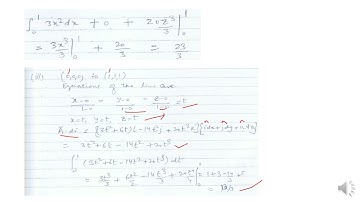 ∫₀¹ 3x²dx + 0 + 20z³/3 |₀¹
= 3x³/3 |₀¹ + 20/3 = 23/3
(iii) (0,0,0) to (1,1,1)
Equations of the line are
x-0/1-0 = y-0/1-0 = z-0/1-0 = t
x=t, y=t, z=t
= 3t²+6t -14t²+20t³
∫₀¹ (3t²+6t-14t²+20t³)dt
= 3t³/3 + 6t²/2 - 14t³/3 + 20t⁴/4 |₀¹ = 1+3-14/3+5